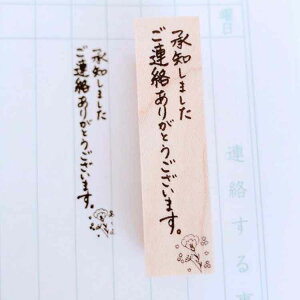 曜日
連絡する事
承知しました
ご連絡ありがとうございます。
承知しました
ご連絡ありがとうございます。